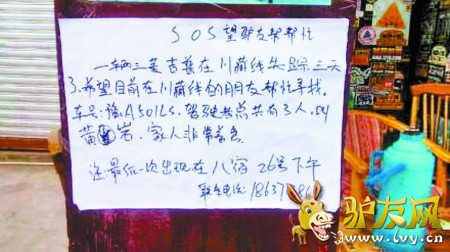 SOS望驴友帮帮忙
一辆三菱吉普在川藏线失踪三天
了,希望目前在川藏线的朋友帮忙寻找。
车号:豫A5011s. 驾驶 共有3人,叫
黄 岩,家人非常着急
最后一次出现在八宿 26号下午
联系电话:18637 86
驴友网
www.lvy.cn